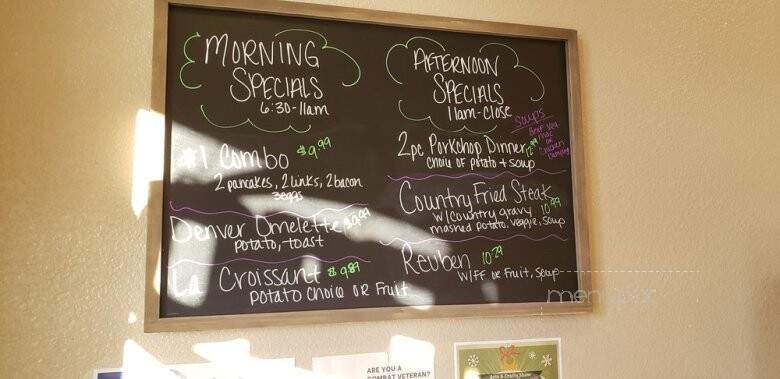 MORNING
SPECIALS
6:30-11am
#1 Combo $9.99
2 pancakes, 2 links, 2 bacon
3 eggs
Denver Omelette $9.99
potato, toast
La Croissant $9.89
potato choice OR Fruit
AFTERNOON
SPECIALS
11am-close
Soups
Beef Veg
Mac
or
Chicken
Dumpling
2pc Porkchop Dinner
choice of potato + soup
Country Fried Steak
w/country gravy 10.99
mashed potato, veggie, soup
Reuben 10.29
w/FF or Fruit, Soup
ARE YOU A
COMBAT VETERAN?
Arts & Crafts Show